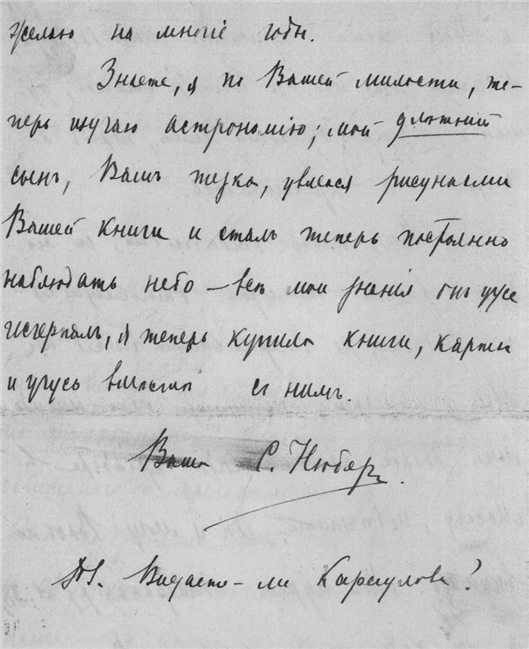 желаю на многіе годы.
Знаете, я по Вашей милости, те-
перь изучаю астрономію; мой 9 лѣтній
сынъ, Вашъ тезка, увлекся рисунками
Вашей книги и сталъ теперь постоянно
наблюдать небо – всѣ мои знанія онъ уже
исчерпалъ, я теперь купила книги, карты
и учусь вмѣстѣ съ нимъ.
Ваша С. Нюберг.
PS. Видаете-ли Караулова?